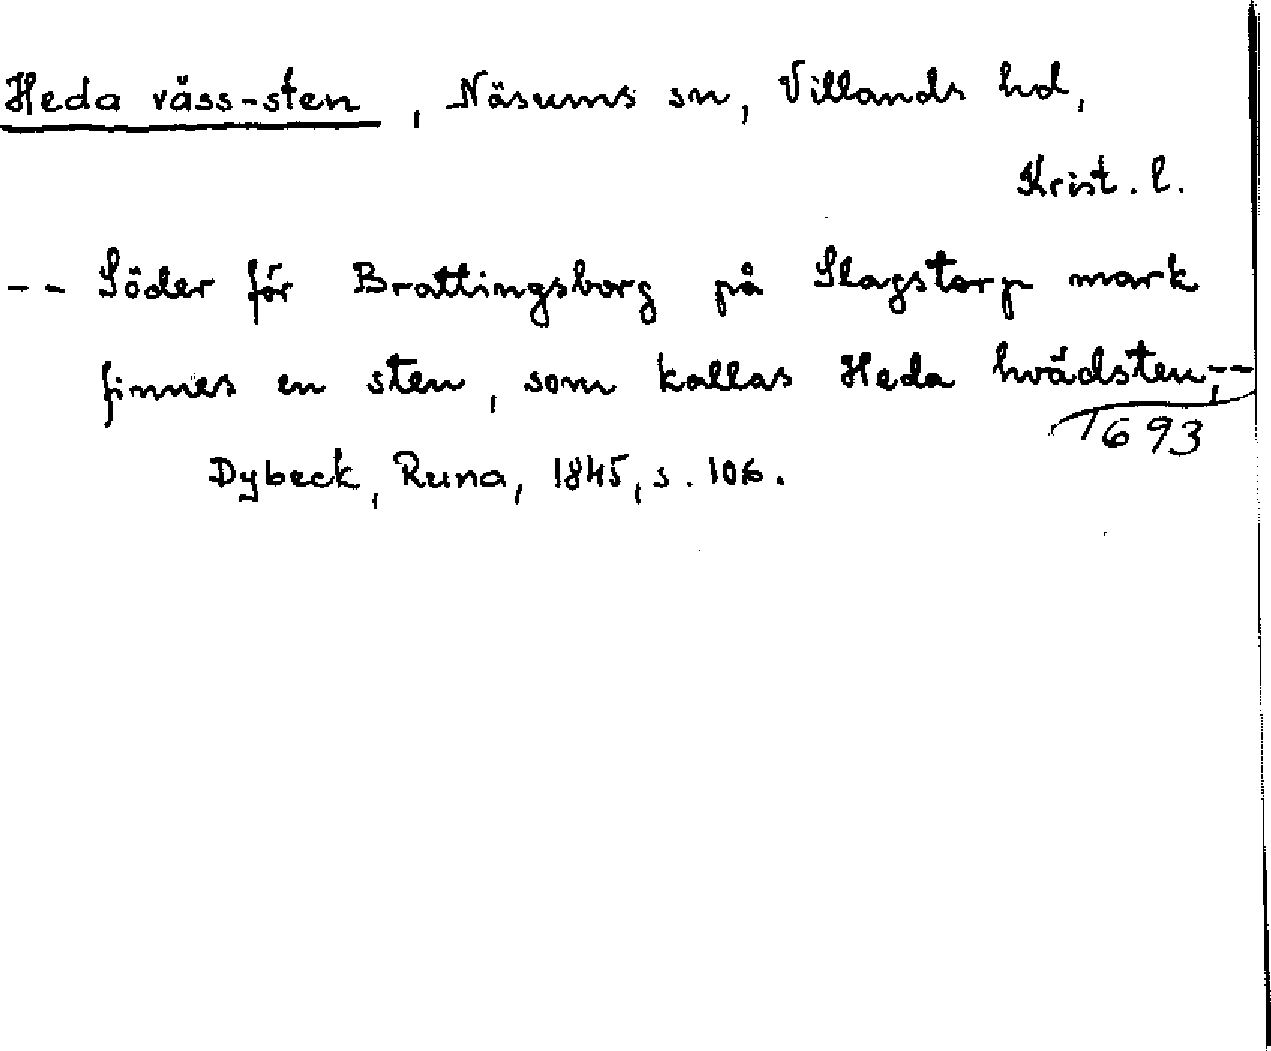 Heda väss-sten, Näsums sn, Villands hd,
Krist. l.
-- Söder för Brattingsborg på Slagstorp mark
finnes en sten, som kallas Heda hvädsten,--
1693
Dybeck, Runa, 1845, s. 106.